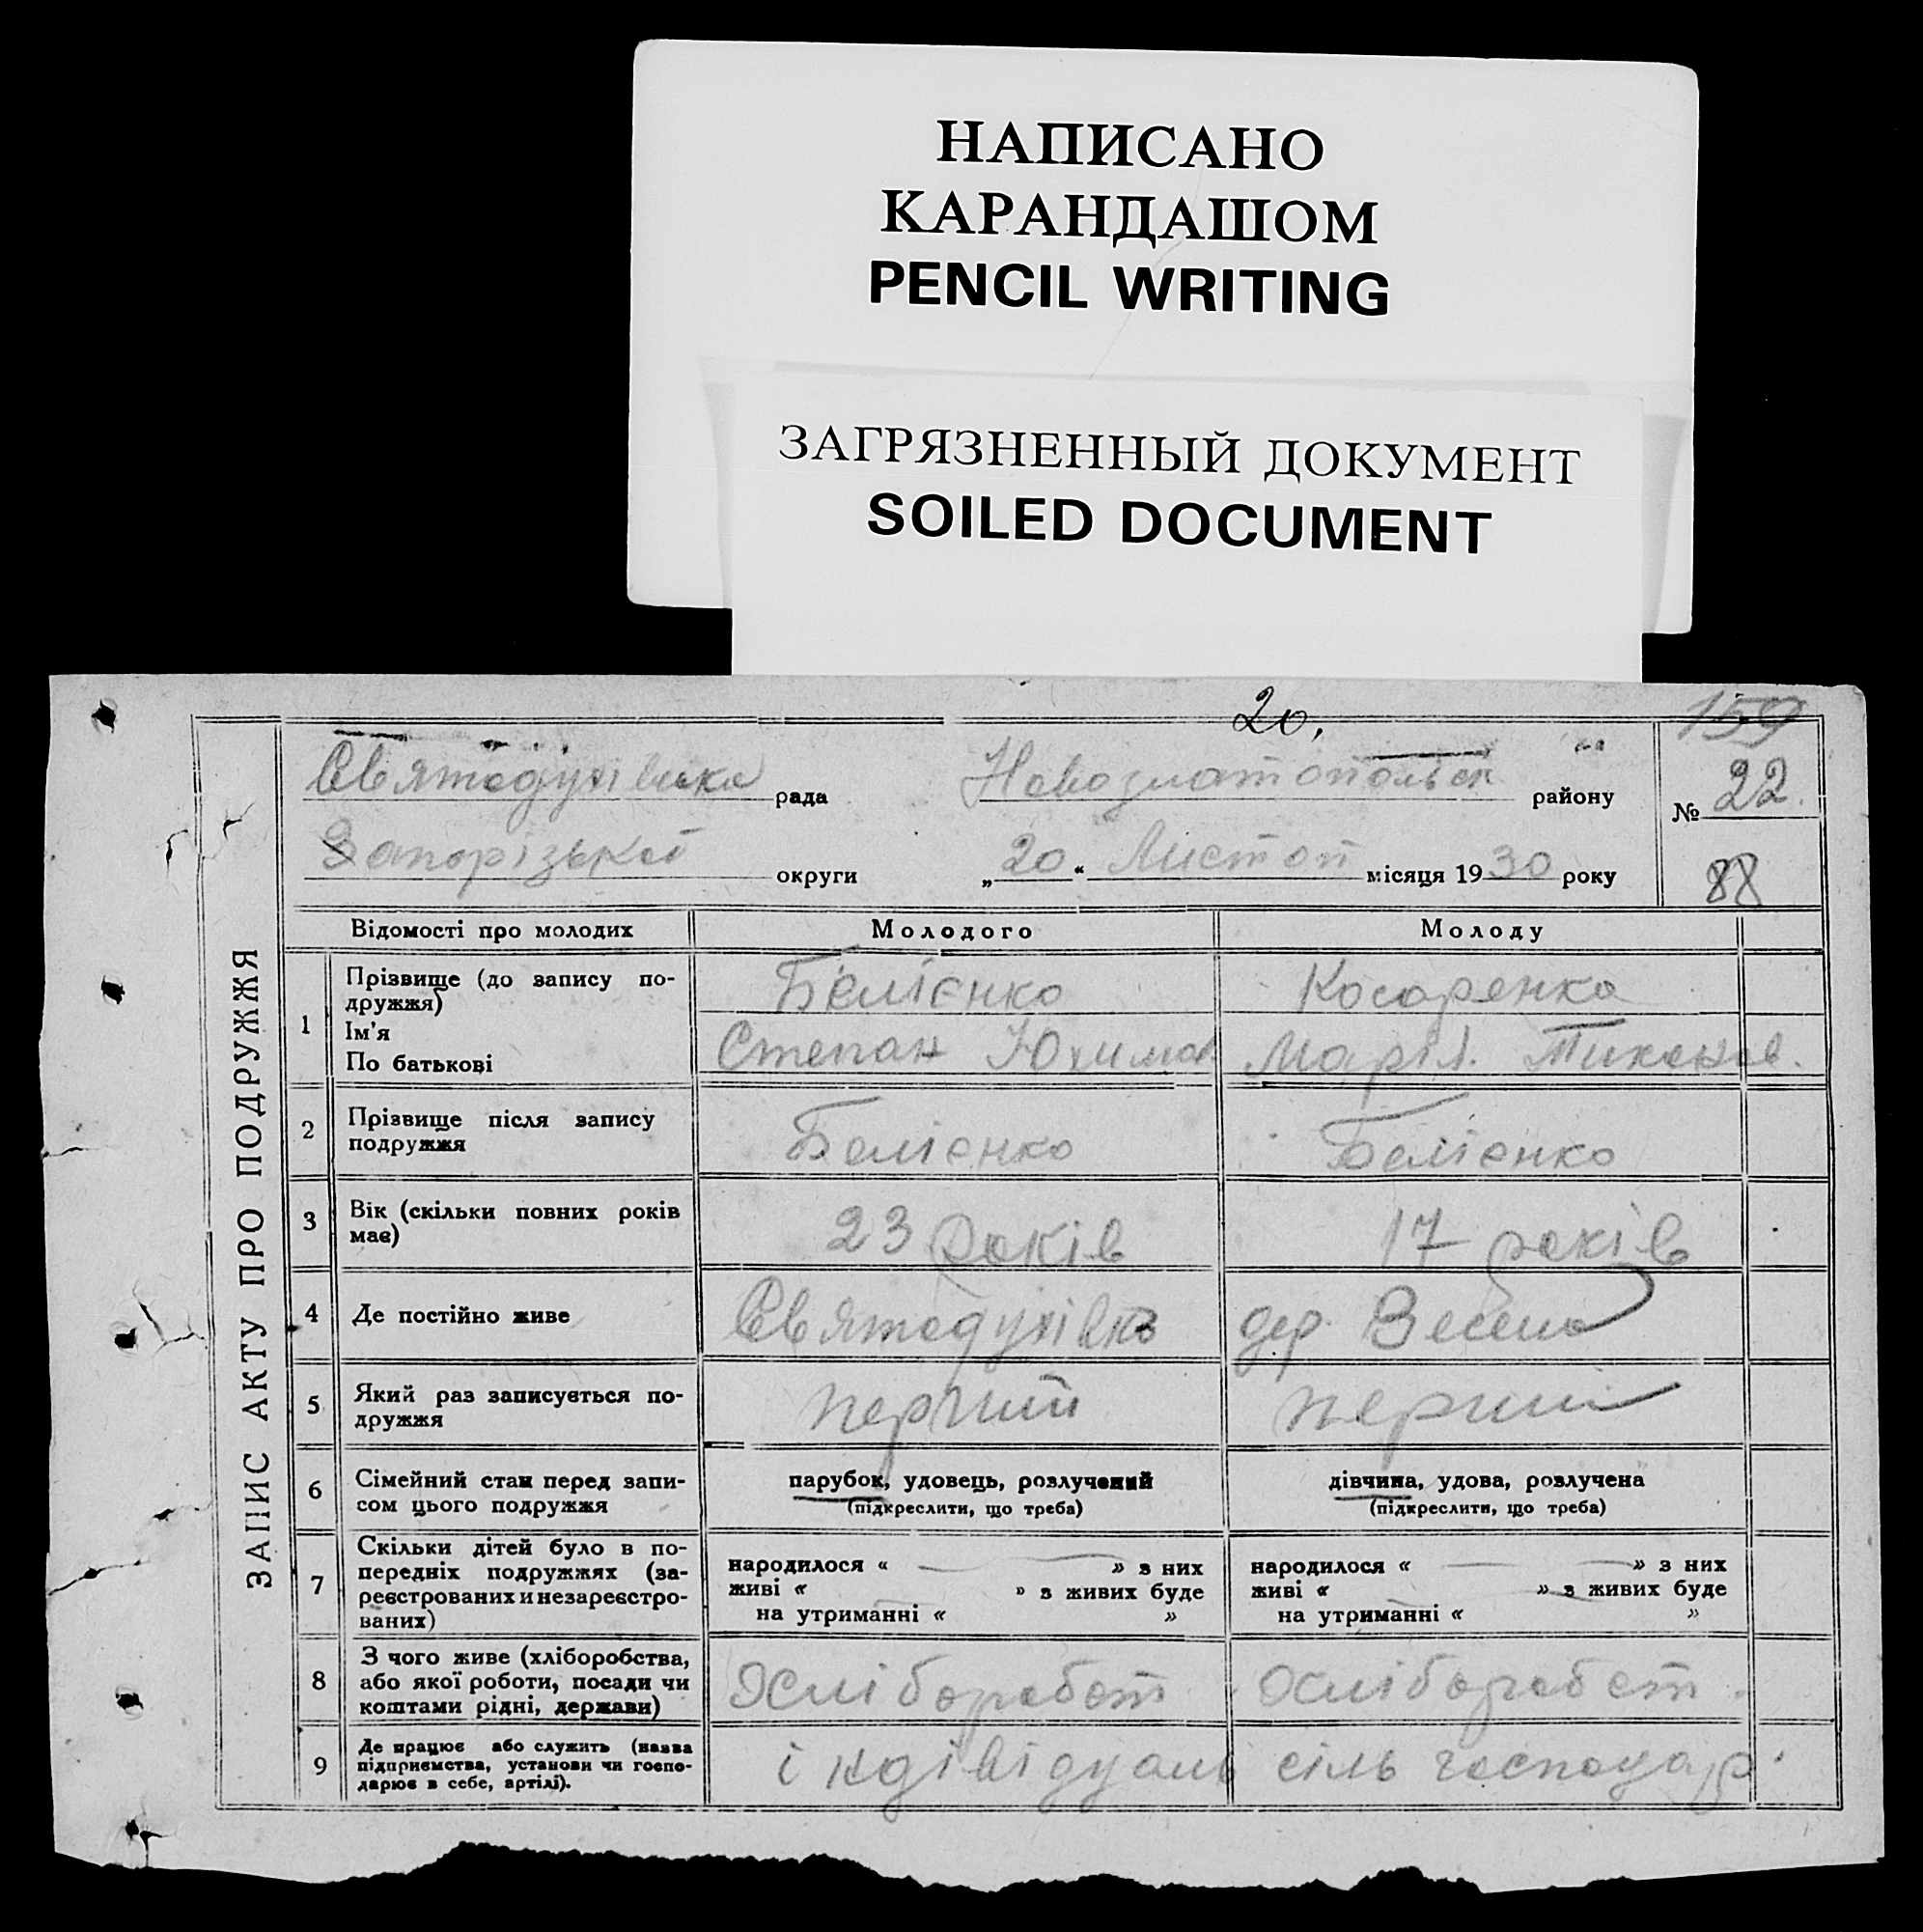 НАПИСАНО
КАРАНДАШОМ
PENCIL WRITING
ЗАГРЯЗНЕННЫЙ ДОКУМЕНТ
SOILED DOCUMENT
20,
159
ЗАПИС АКТУ ПРО ПОДРУЖЖЯ
Святодухівська рада Новозлатопольськ району № 22.
Запорізької округи „20“ Листоп місяця 1930 року
88
Відомості про молодих Молодого Молоду
1 Прізвище (до запису по-
дружжя) Белієнко Косаренко
Ім'я
По батькові Степан Юхимов Марія. Тиханов.
2 Прізвище після запису
подружжя Белієнко Белієнко
3 Вік (скільки повних років
має) 23 років 17 років
4 Де постійно живе Святодухівка дер. Весела
5 Який раз записується по-
дружжя перший перший
6 Сімейний стан перед запи-
сом цього подружжя
парубок, удовець, розлучений дівчина, удова, розлучена
(підкреслити, що треба) (підкреслити, що треба)
7 Скільки дітей було в по-
передніх подружжях (за-
реєстрованих и незареєстро-
ваних)
народилося « — » з них народилося « — » з них
живі « » з живих буде живі « » з живих буде
на утриманні « » на утриманні « »
8 З чого живе (хліборобства,
або якої роботи, посади чи
коштами рідні, держави)
Хліборабот Хліборабот.
9 Де працює або служить (назва
підприємства, установи чи госпо-
дарює в себе, артілі).
індівідуаль сіль господар.